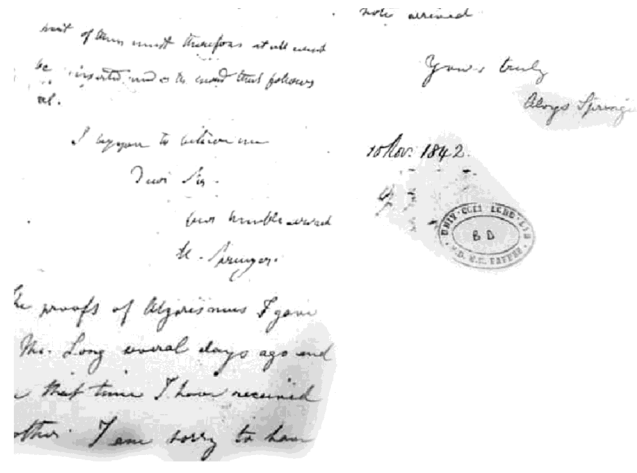 must therefore at all
be inserted and the word that follows
I
to believe me
Dear Sir
Your humble servant
A. Sprenger.
The proofs of Algorismus I gave
Mr. Long several days ago and
that time I have received
other. I am sorry to have
not arrived
Yours truly
Aloys Sprenge
10 Nov. 1842.
UNIV. COLL. LOND. LIB
B D
S.D.U.K. PAPERS